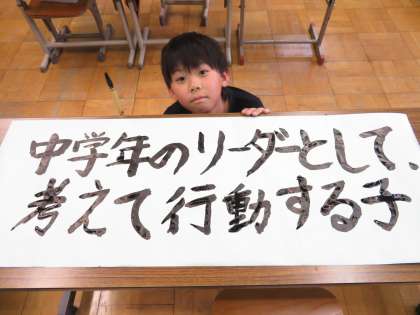 中学年のリーダーとして、
考えて行動する子